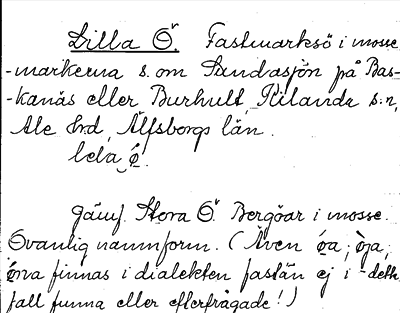 Lilla Ö. Fastmarksö i mosse
-markerna s. om Sundasjön på Bas-
-kanäs eller Burhult, Kilanda s:n,
Ale hrd, Älfsborgs län.
lela ö.
Jämf. Stora Ö. Bergöar i mosse.
Ovanlig namnform. (Även öa, öja,
öna finnas i dialekten fastän ej i detta
fall funna eller efterfrågade!)